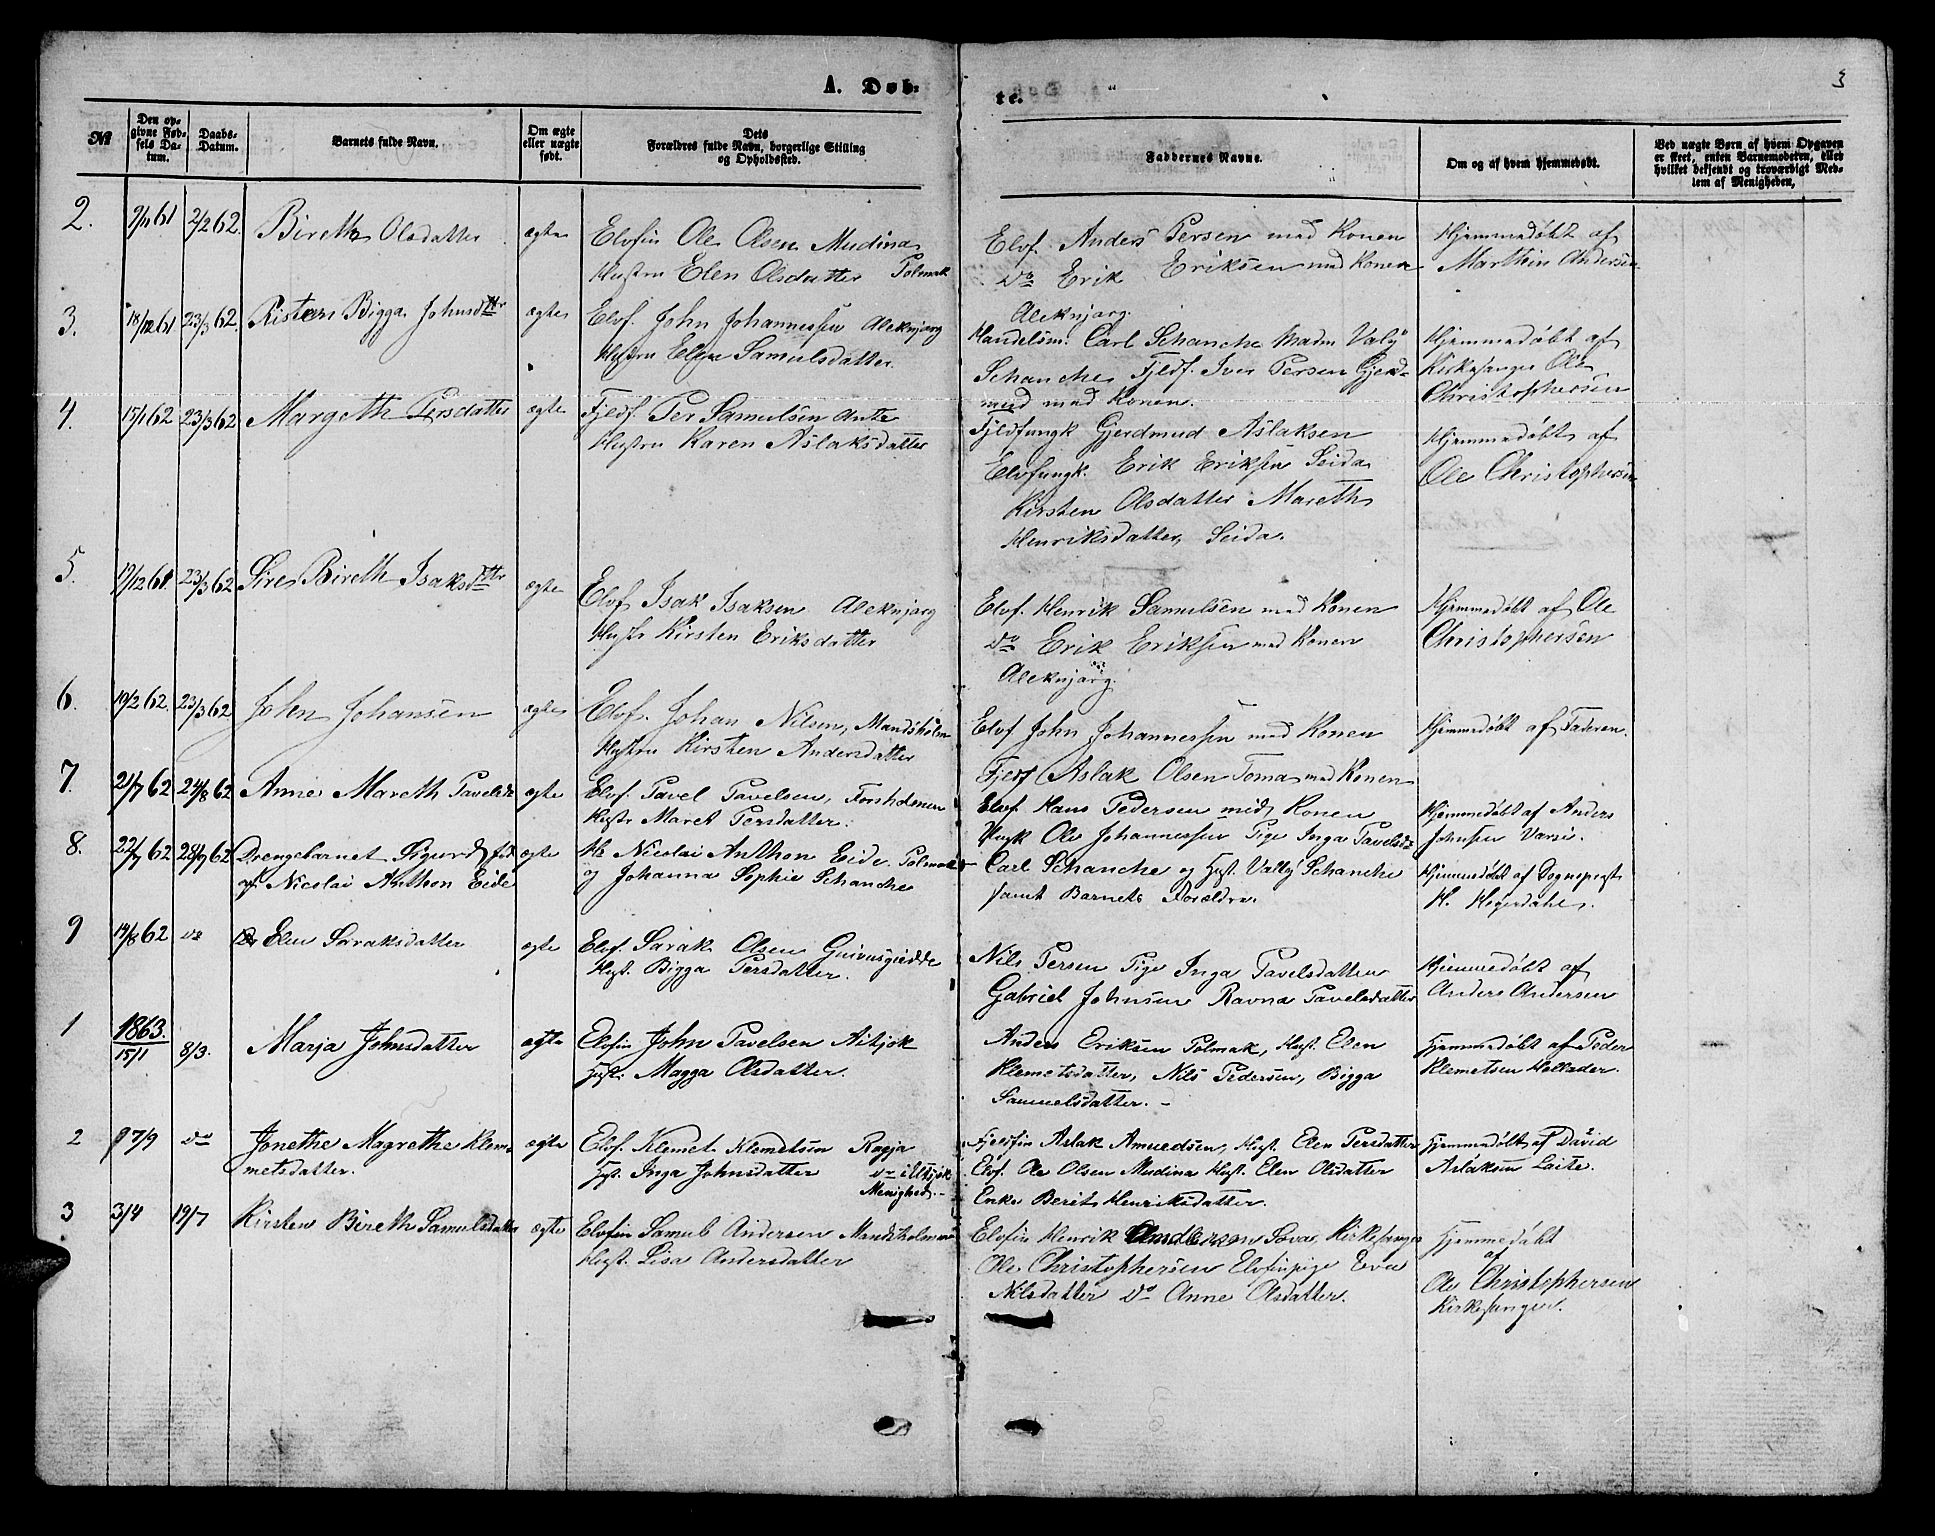 A. Døb-
te.
3
№
Den op-
givne Fød-
sels Da-
tum.
Daabs-
Datum.
Barnets fulde Navn.
Om ægte
eller uægte
født.
Dets
Forældres fulde Navn, borgerlige Stilling
og Opholdssted.
Faddernes Navne.
Om og af hvem hjemmedøbt.
Ved uægte Børn af hvem Opgaven
er skeet, enten Barnemoderen, eller
hvilket bekjendt og troværdigt Med-
lem af Menigheden,
2. 9/11 61 2/2 62. Bireth Olsdatter ægte Elvfin Ole Olsen Mudina
Hustru Elen Olsdatter Polmak
Elvf. Anders Persen med Konen
Do Erik Eriksen med Konen
Aleknjarg.
Hjemmedøbt af
Marthin Andersen
3. 18/12 61 23/3 62. Risten Bigga Johnsdttr ægte Elvf. John Johannessen Aleknjarg
Hustru Elen Samulsdatter.
Handelsm. Carl Schanche Madm Valy
Schanche, Fjeldf. Iver Persen Gjerd-
mud med Konen.
Hjemmedøbt af
Kirkesanger Ole
Christophersen
4. 15/1 62 23/3 62 Margeth Persdatter ægte Fjeldf Per Samulsen Ante
Hustru Karen Aslaksdatter
Fjeldfungk Gjerdmud Aslaksen
Elvfungk. Erik Eriksen Seida
Kirsten Olsdatter Mareth
Henriksdatter, Seida.
Hjemmedøbt af
Ole Christophersen
5. 19/12 61. 23/3 62 Sire Bireth Isaksdttr ægte Elvf Isak Isaksen Aleknjarg
Hustr Kirsten Eriksdatter
Elvf. Henrik Samulsen med Konen
Do Erik Eriksen med Konen
Aleknjarg.
Hjemmedøbt af Ole
Christophersen
6. 19/2 62. 23/3 62 John Johansen ægte Elvf. Johan Nilsen, Mandsholm
Hustru Kirsten Andersdatter
Elvf John Johannessen med Konen
Fjeldf Aslak Olsen Toma med Konen
Hjemmedøbt af Faderen.
7. 21/7 62 24/8 62 Anne Mareth Pavelsd ægte Elvf. Pavel Pavelsen, Forsholmen
Hustr Maret Persdatter.
Elvf. Hans Pedersen med Konen
Ungk Ole Johannessen Pige Inga Pavelsd
Hjemmedøbt af Anders
Johnsen Varsi.
8. 22/7 62 28/9 62 Drengebarnet Sigurd fød
af Nicolai Anthon Eide ægte Hr Nicolai Anthon Eide. Polmak
og Johanna Sophie Schanche
Carl Schanche og Hust. Valby Schanche
samt Barnets Forældre.
Hjemmedøbt af Sognepræst
H. Hegerdahl.
9 19/8 62 do Elen Saraksdatter ægte Elvf. Sarak Olsen Guivusgiedde
Hust. Bigga Persdatter.
Nils Persen Pige Inga Pavelsdatter
Gabriel Johnsen Ravna Pavelsdatter
Hjemmedøbt af
Anders Andersen
1 1863.
15/1 8/3. Marja Johnsdatter ægte Elvfin John Pavelsen Aitjok
Hust. Magga Olsdatter.
Anders Eriksen Polmak, Hust. Elen
Klemetsdatter, Nils Pedersen, Bigga
Samuelsdatter. -
Hjemmedøbt af Peder
Klemetsen Hallader.
2 7/9 do Jonethe Magrethe Klem-
metsdatter. ægte Elvf. Klemet Klemetsen Ragja
Hst. Inga Johnsdatter do i Utsjok
Menighed. -
Fjeldfin Aslak Amundsen, Hust. Elen Persdatter
Elvf. Ole Olsen Mudina Hust. Elen Olsdatter
Enke Berit Henriksdatter.
Hjemmedøbt af David
Aslaksen Laite.
3 3/4 19/7 Kirsten Bireth Samulsdatter ægte Elvfin Samul Andersen Mandsholmen
Hust. Lisa Andersdatter
Elvfin Henrik Andersen Sova, Kirkesanger
Ole Christophersen Elvfinpige Eva
Nilsdatter do Anne Olsdatter.
Hjemmedøbt
af
Ole Christophersen
Kirkesanger.